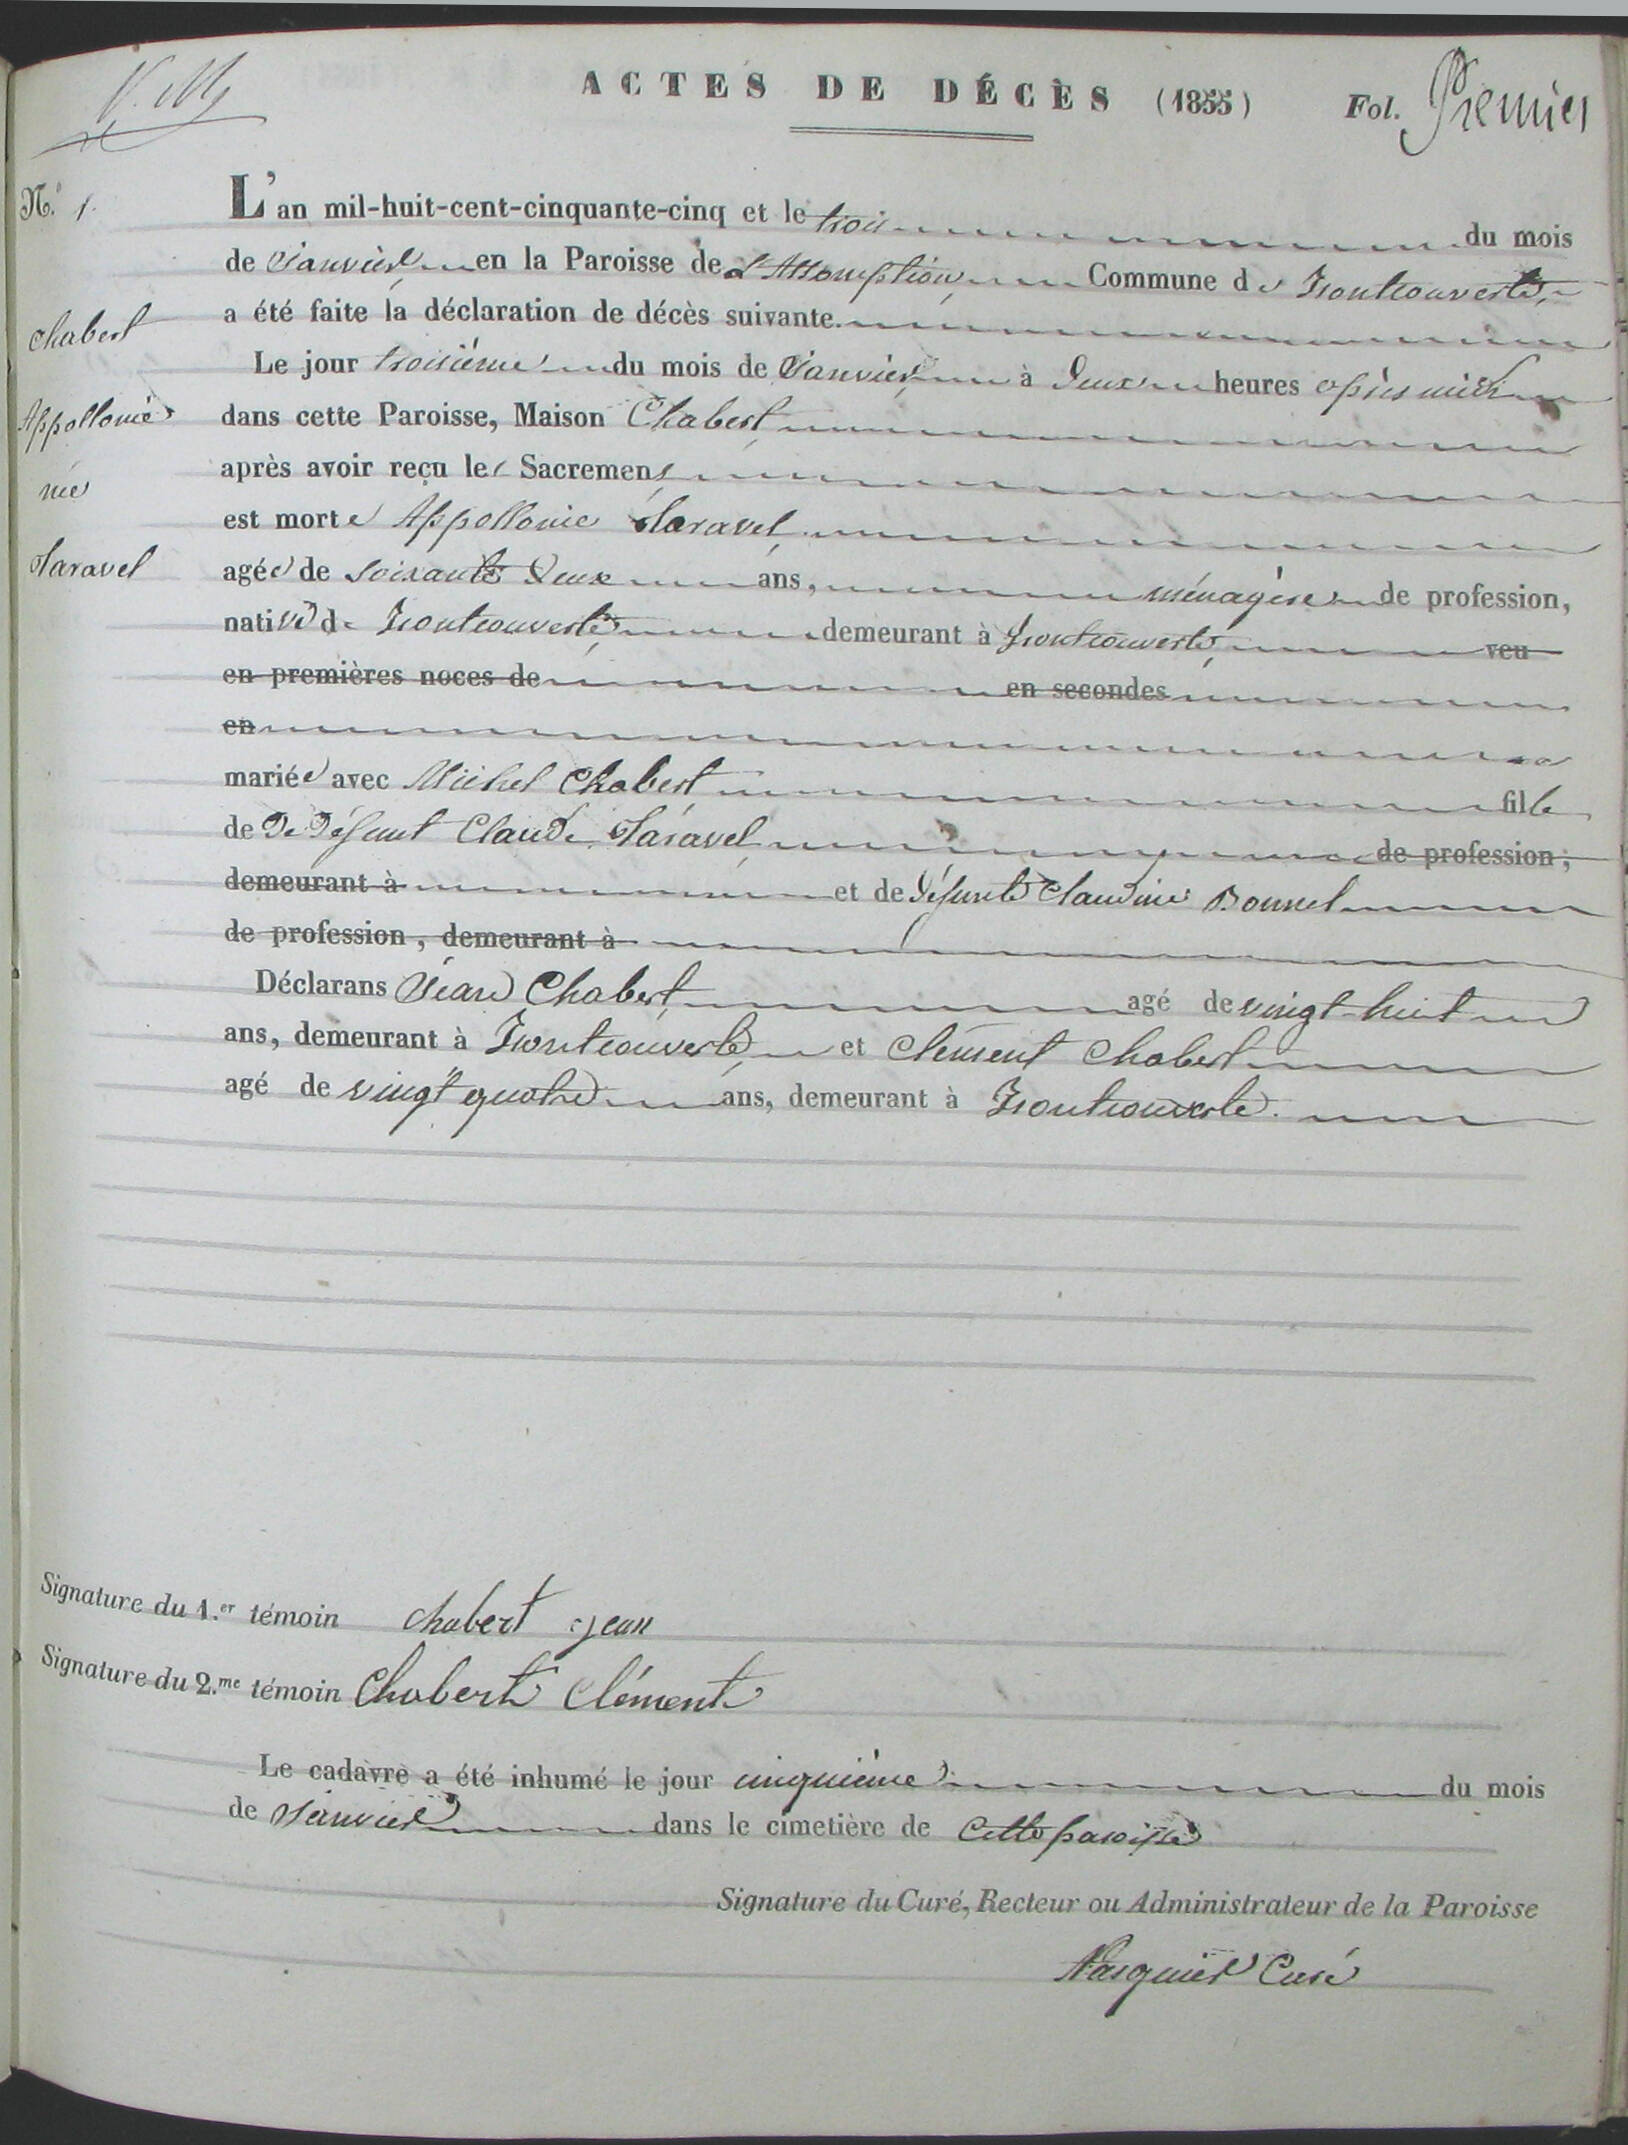 V. M
ACTES DE DÉCÈS (1855) Fol. Premier
N.º 1.
L'an mil-huit-cent-cinquante-cinq et le trois du mois
de Janvier en la Paroisse de L'Assomption Commune de Frontcouverte,
a été faite la déclaration de décès suivante.
Chabert
Le jour troisième du mois de Janvier, à Deux heures après midi
Appollonie
dans cette Paroisse, Maison Chabert
après avoir reçu les Sacremens
née
est morte Appollonie Taravel
Taravel
agée de soixante Deux ans, ménagère de profession,
native de Frontcouverte, demeurant à frontcouverte, veu
en premières noces de en secondes
en
mariée avec Michel Chabert fille
de De Défunt Claude Taravel de profession,
demeurant à et de Défunte Claudine Bonnel
de profession, demeurant à
Déclarans Jean Chabert agé de vingt-huit
ans, demeurant à Frontcouverte, et Clément Chabert
agé de vingt quatre ans, demeurant à Frontcouverte.
Signature du 1.er témoin chabert jean
Signature du 2.me témoin Chabert Clément
Le cadavre a été inhumé le jour cinquième du mois
de Janvier dans le cimetière de cette paroisse
Signature du Curé, Recteur ou Administrateur de la Paroisse
Curé